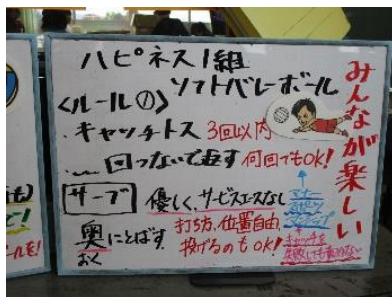 ハピネス1組
ソフトバレーボール
みんなが楽しい
〈ルールの〉
・キャッチトス 3回以内
回つないで返す 何回でもOK!
サーブ 優しく、サービスエースなし
奥にとばす 打ち方、位置自由、
おく 投げるのもOK!
キャッチを
失敗しても責めない